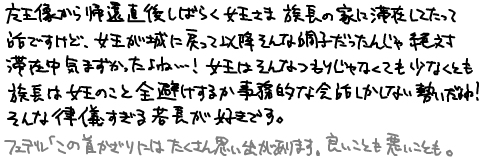 左王像から帰還直後しばらく女王さま 族長の家に滞在してたって
話ですけど、女王が城に戻って以降そんな調子だったんじゃ 絶対
滞在中気まずかったよね…！女王はそんなつもりじゃなくても少なくとも
族長は女王のこと全避けするか事務的な会話しかしない勢いだね！
そんな律儀すぎる若長が好きです。
フェデル「この首かざりにはたくさん思い出があります。良いことも悪いことも。